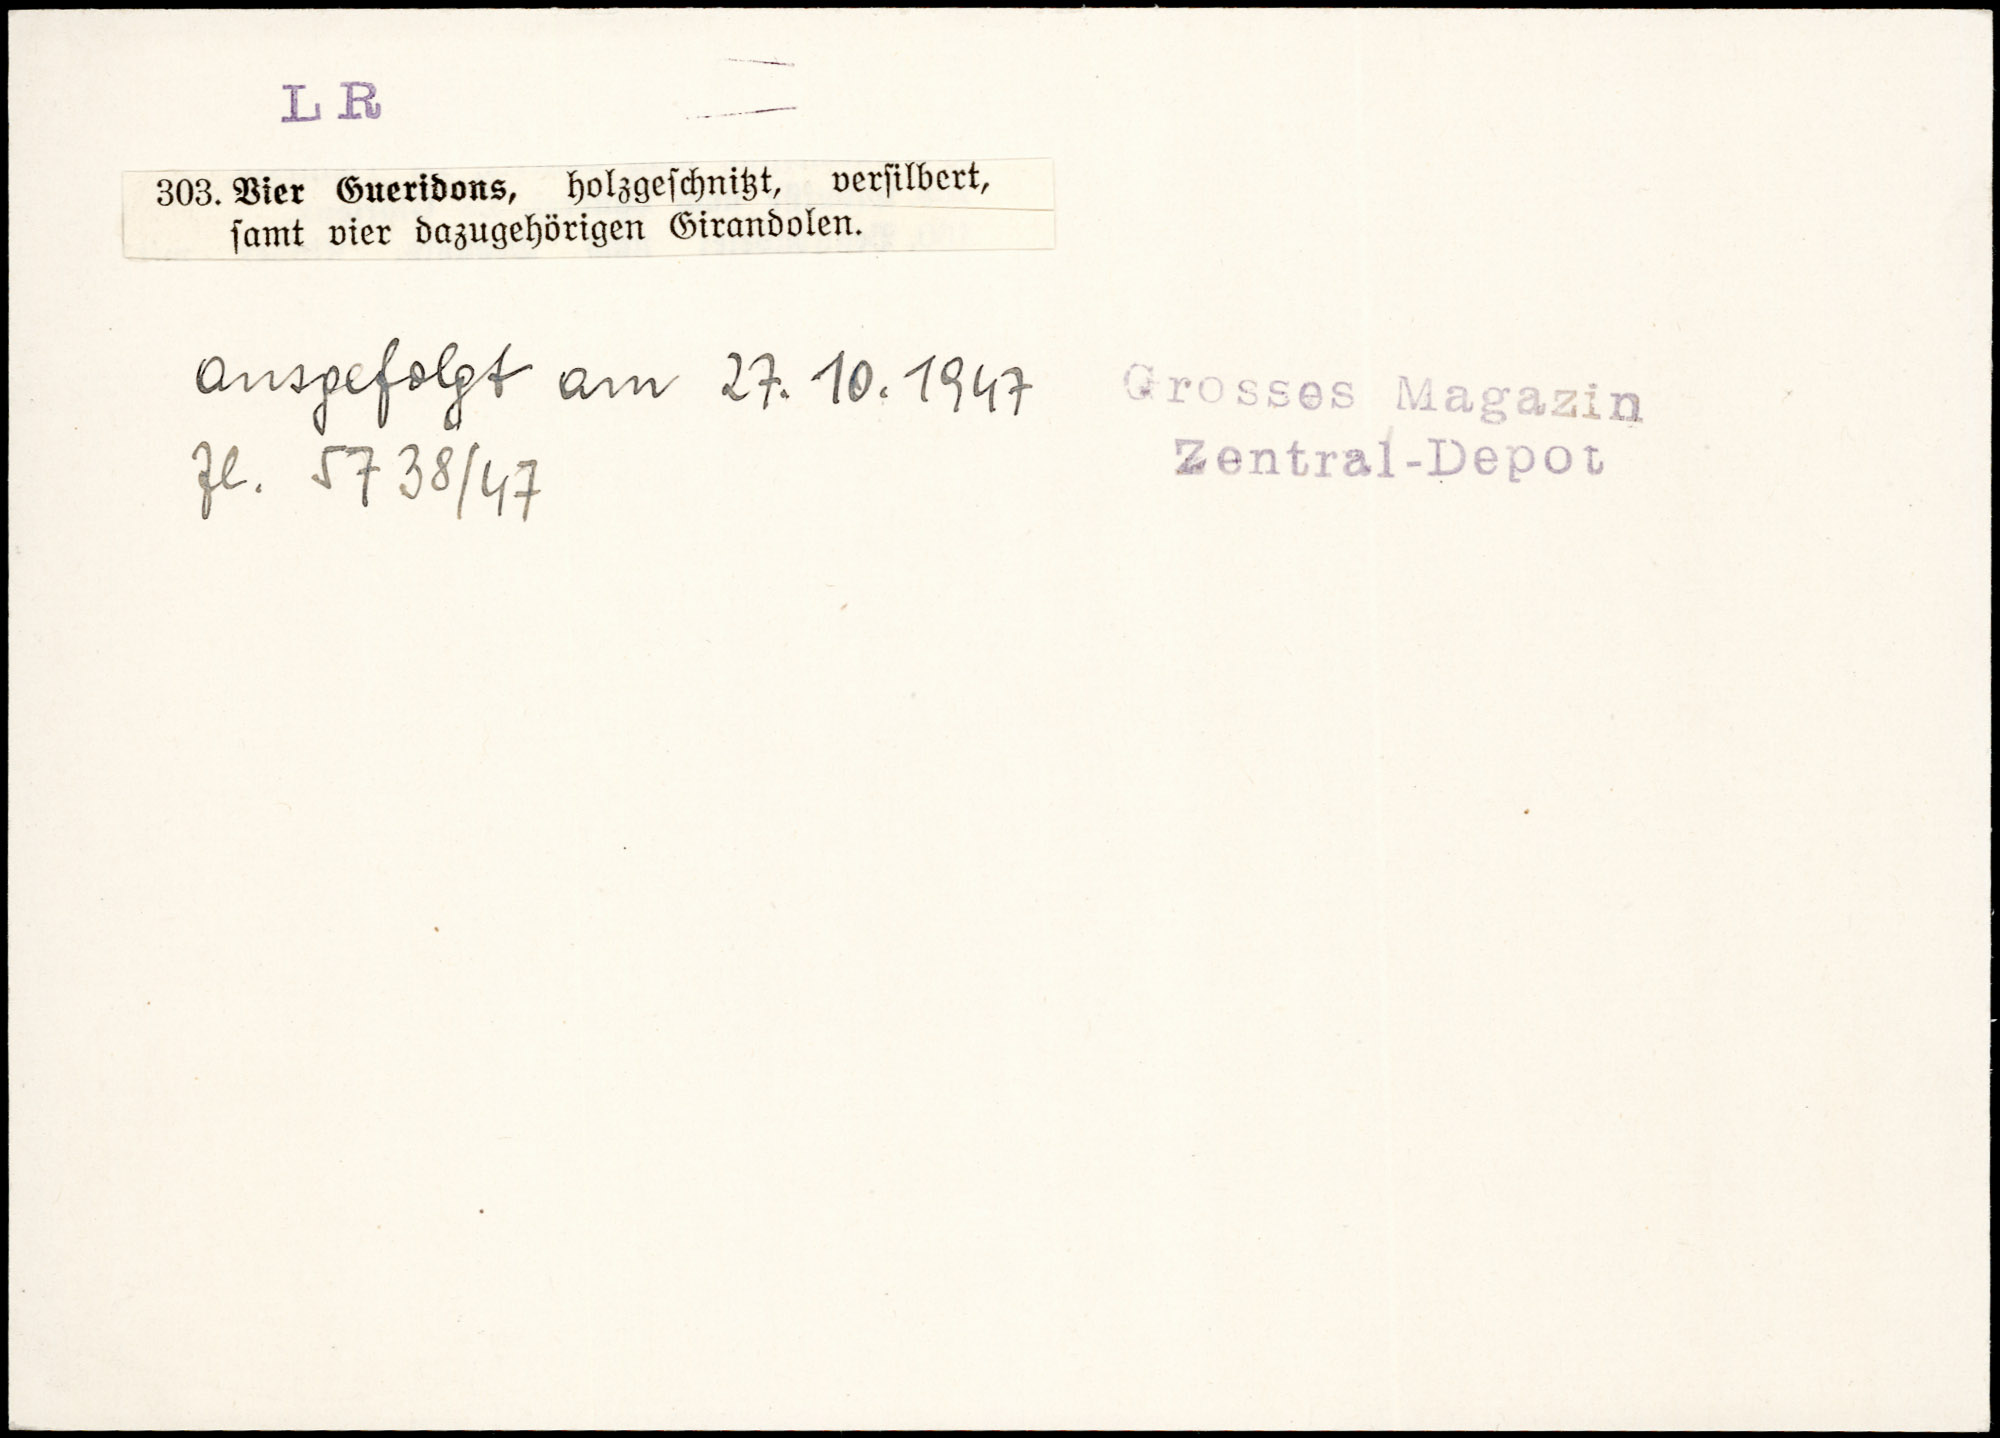 L R
303. Vier Gueridons, holzgeſchnitzt, verſilbert,
ſamt vier dazugehörigen Girandolen.
ausgefolgt am 27. 10. 1947
Zl. 5738/47
Grosses Magazin
Zentral-Depot